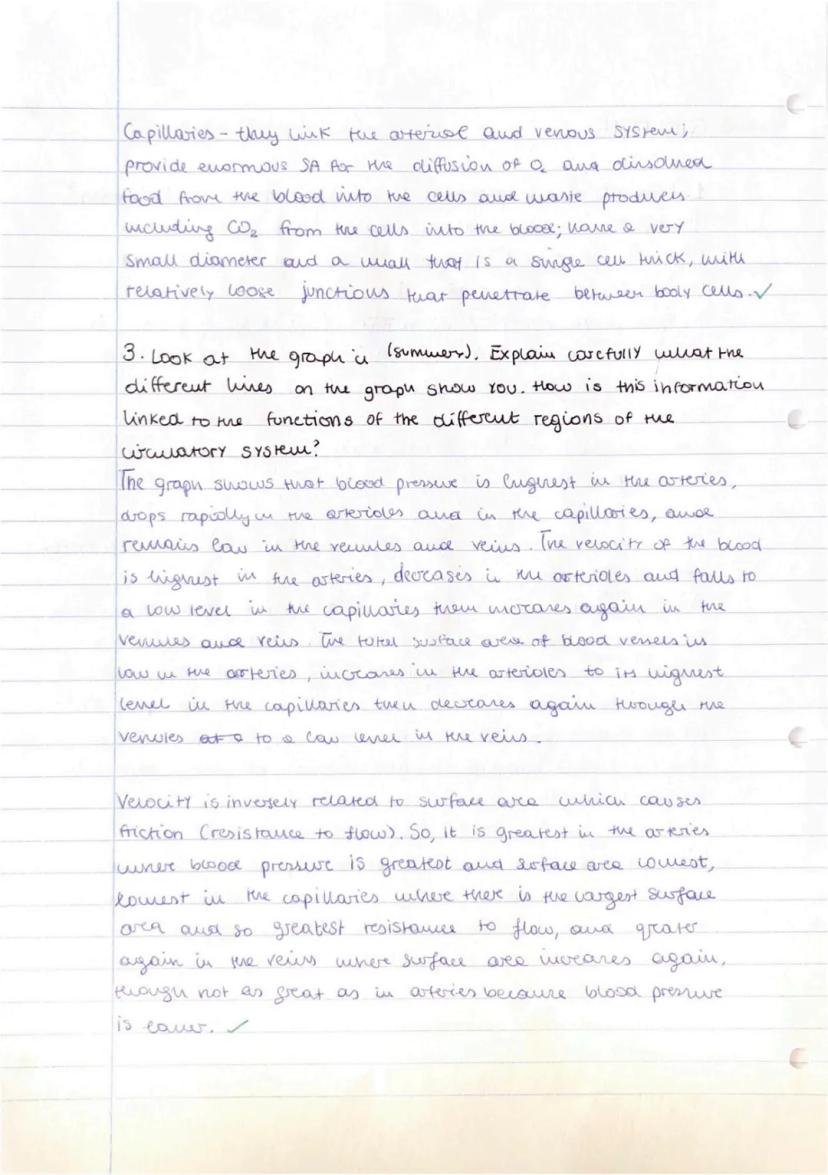 Capillaries - they link the arterial and venous system;
provide enormous SA for the diffusion of O₂ and dissolved
food from the blood into the cells and waste products
including CO₂ from the cells into the blood; have a very
small diameter and a wall that is a single cell thick, with
relatively loose junctions that penetrate between body cells. ✓
3. Look at the graph in (summer). Explain carefully what the
different lines on the graph show you. How is this information
linked to the functions of the different regions of the
circulatory system?
The graph shows that blood pressure is highest in the arteries,
drops rapidly in the arterioles and in the capillaries, and
remains low in the venules and veins. The velocity of the blood
is highest in the arteries, decreases in the arterioles and falls to
a low level in the capillaries then increases again in the
venules and veins. The total surface area of blood vessels is
low in the arteries, increases in the arterioles to its highest
level in the capillaries then decreases again through the
venules to a low level in the veins.
Velocity is inversely related to surface area which causes
friction (resistance to flow). So, it is greatest in the arteries
where blood pressure is greatest and surface area lowest,
lowest in the capillaries where there is the largest surface
area and so greatest resistance to flow, and greater
again in the veins where surface area increases again,
though not as great as in arteries because blood pressure
is lower. ✓